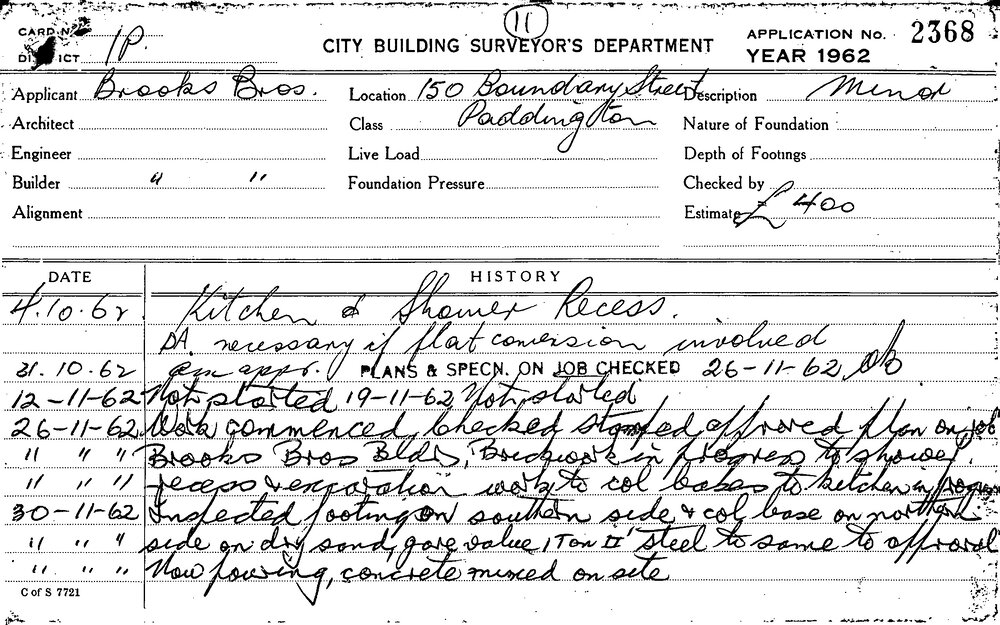 11
CARD No.
DISTICT 1P.
CITY BUILDING SURVEYOR'S DEPARTMENT
APPLICATION No. 2368
YEAR 1962
Applicant Brooks Bros. Location 150 Boundary Street Description Minor
Architect Class Paddington Nature of Foundation
Engineer Live Load Depth of Footings
Builder " " Foundation Pressure Checked by
Alignment Estimate £400
DATE HISTORY
4.10.62 Kitchen & Shower Recess.
DA. necessary if flat conversion involved
31.10.62 appr. PLANS & SPECN. ON JOB CHECKED 26-11-62
12-11-62 Not started 19-11-62 Not started
26-11-62 Work commenced, checked stamped approved plan on job
" " " Brooks Bros Bldrs, Brickwork in progress to shower
" " " recess & excavation work to col bases to kitchen in progress
30-11-62 Inspected footing on southern side & col base on northern
" " " side on dry sand, gave value 1 Ton □' steel to same to approval
" " " Now pouring, concrete mixed on site
C of S 7721